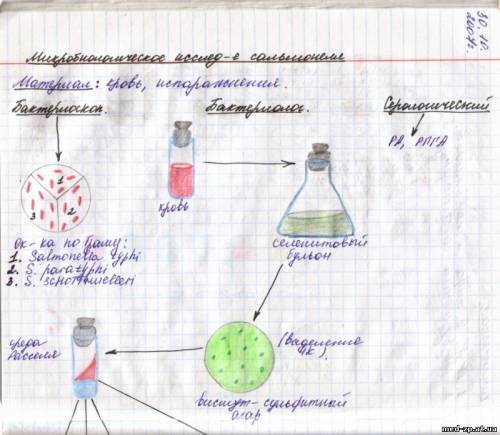 30.10.
2007г.
Микробиологическое исслед-е сальмонелл
Материал: кровь, испоражнения.
Бактериоскоп.
Бактериолог.
Серологический
РА, РПГА
1
2
3
кровь
селенитовый
бульон
Ок-ка по Граму:
1. Salmonella typhi
2. S. paratyphi
3. S. schottmuelleri
среда
Расселя
(выделение
ЧК).
висмут-сульфитный
агар
med-zp.at.ua